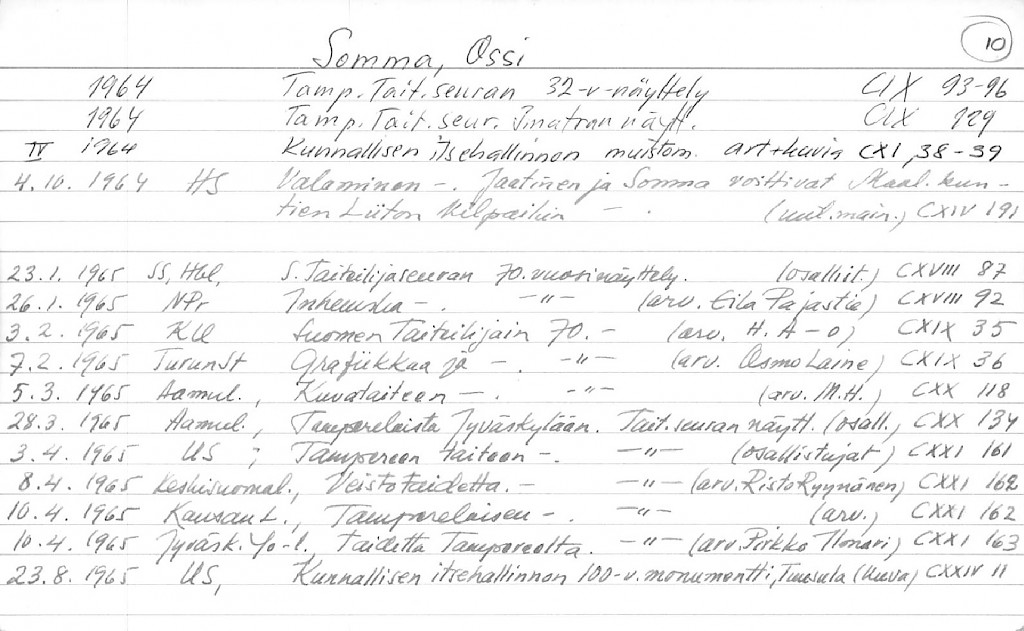 10
Somma, Ossi
1964 Tamp. Tait. seuran 32-v-näyttely CIX 93-96
1964 Tamp. Tait. seur. Imatran näytt. CIX 129
IV 1964 Kunnallisen itsehallinnon muistom. art+kuvia CXI, 38-39
4.10. 1964 HS Valaminen -. Jaatinen ja Somma voittivat Maal. kun-
tien Liiton kilpailun - . (uut.main.) CXIV 191
23.1. 1965 SS, Hbl, S. Taiteilijaseuran 70. vuosinäyttely. (osallist.) CXVIII 87
26.1. 1965 NPr Inhemska - . -"- (arv. Eila Pajastie) CXVIII 92
3.2. 1965 KU Suomen Taiteilijain 70. - (arv. H. A-o) CXIX 35
7.2. 1965 TurunSt Grafiikkaa ja - . -"- (arv. Osmo Laine) CXIX 36
5.3. 1965 Aamul., Kuvataiteen - . -"- (arv. M.H.) CXX 118
28.3. 1965 Aamul., Tamperelaista Jyväskylään. Tait. seuran näytt. (osall.) CXX 134
3.4. 1965 US, Tampereen taiteen -. -"- (osallistujat) CXXI 161
8.4. 1965 Keskisuomal., Veistotaidetta. - -"- (arv. Risto Ryynänen) CXXI 162
10.4. 1965 Kansan L., Tamperelaisen - . -"- (arv.) CXXI 162
10.4. 1965 Jyväsk. Yo-l, Taidetta Tampereelta. -"- (arv. Pirkko Ilonari) CXXI 163
23.8. 1965 US, Kunnallisen itsehallinnon 100-v. monumentti, Tuusula (kuva) CXXIV 11